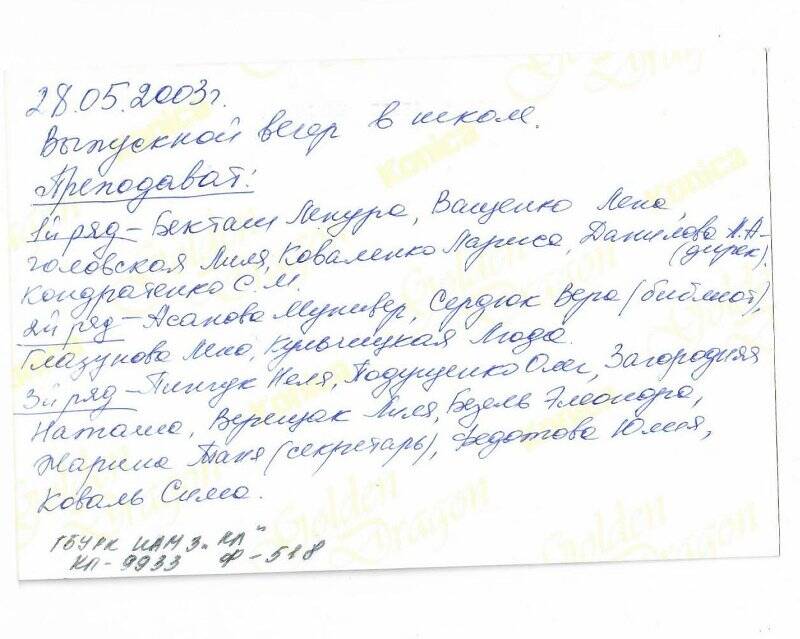 28.05.2003г.
Выпускной вечер в школе.
Преподават:
1й ряд – Бекташ Ленура, Ващенко Лена,
головская Лиля, Коваленко Лариса, Данилова Н.А –
(дирек).
Кондратенко С.М.
2й ряд – Асанова Мунивер, Сердюк Вера (библиот),
Глазунова Лена, Кульчицкая Люда.
3й ряд – Пинчук Неля, Подущенко Олег, Загородняя
Наташа, Верещак Лиля, Безель Элеонора,
Жарина Таня (секретарь), Федотова Юлия,
Коваль Сима.
ГБУРК ИАМЗ „КЛ"
КП-9933 Ф-518
Konica
Golden Dragon